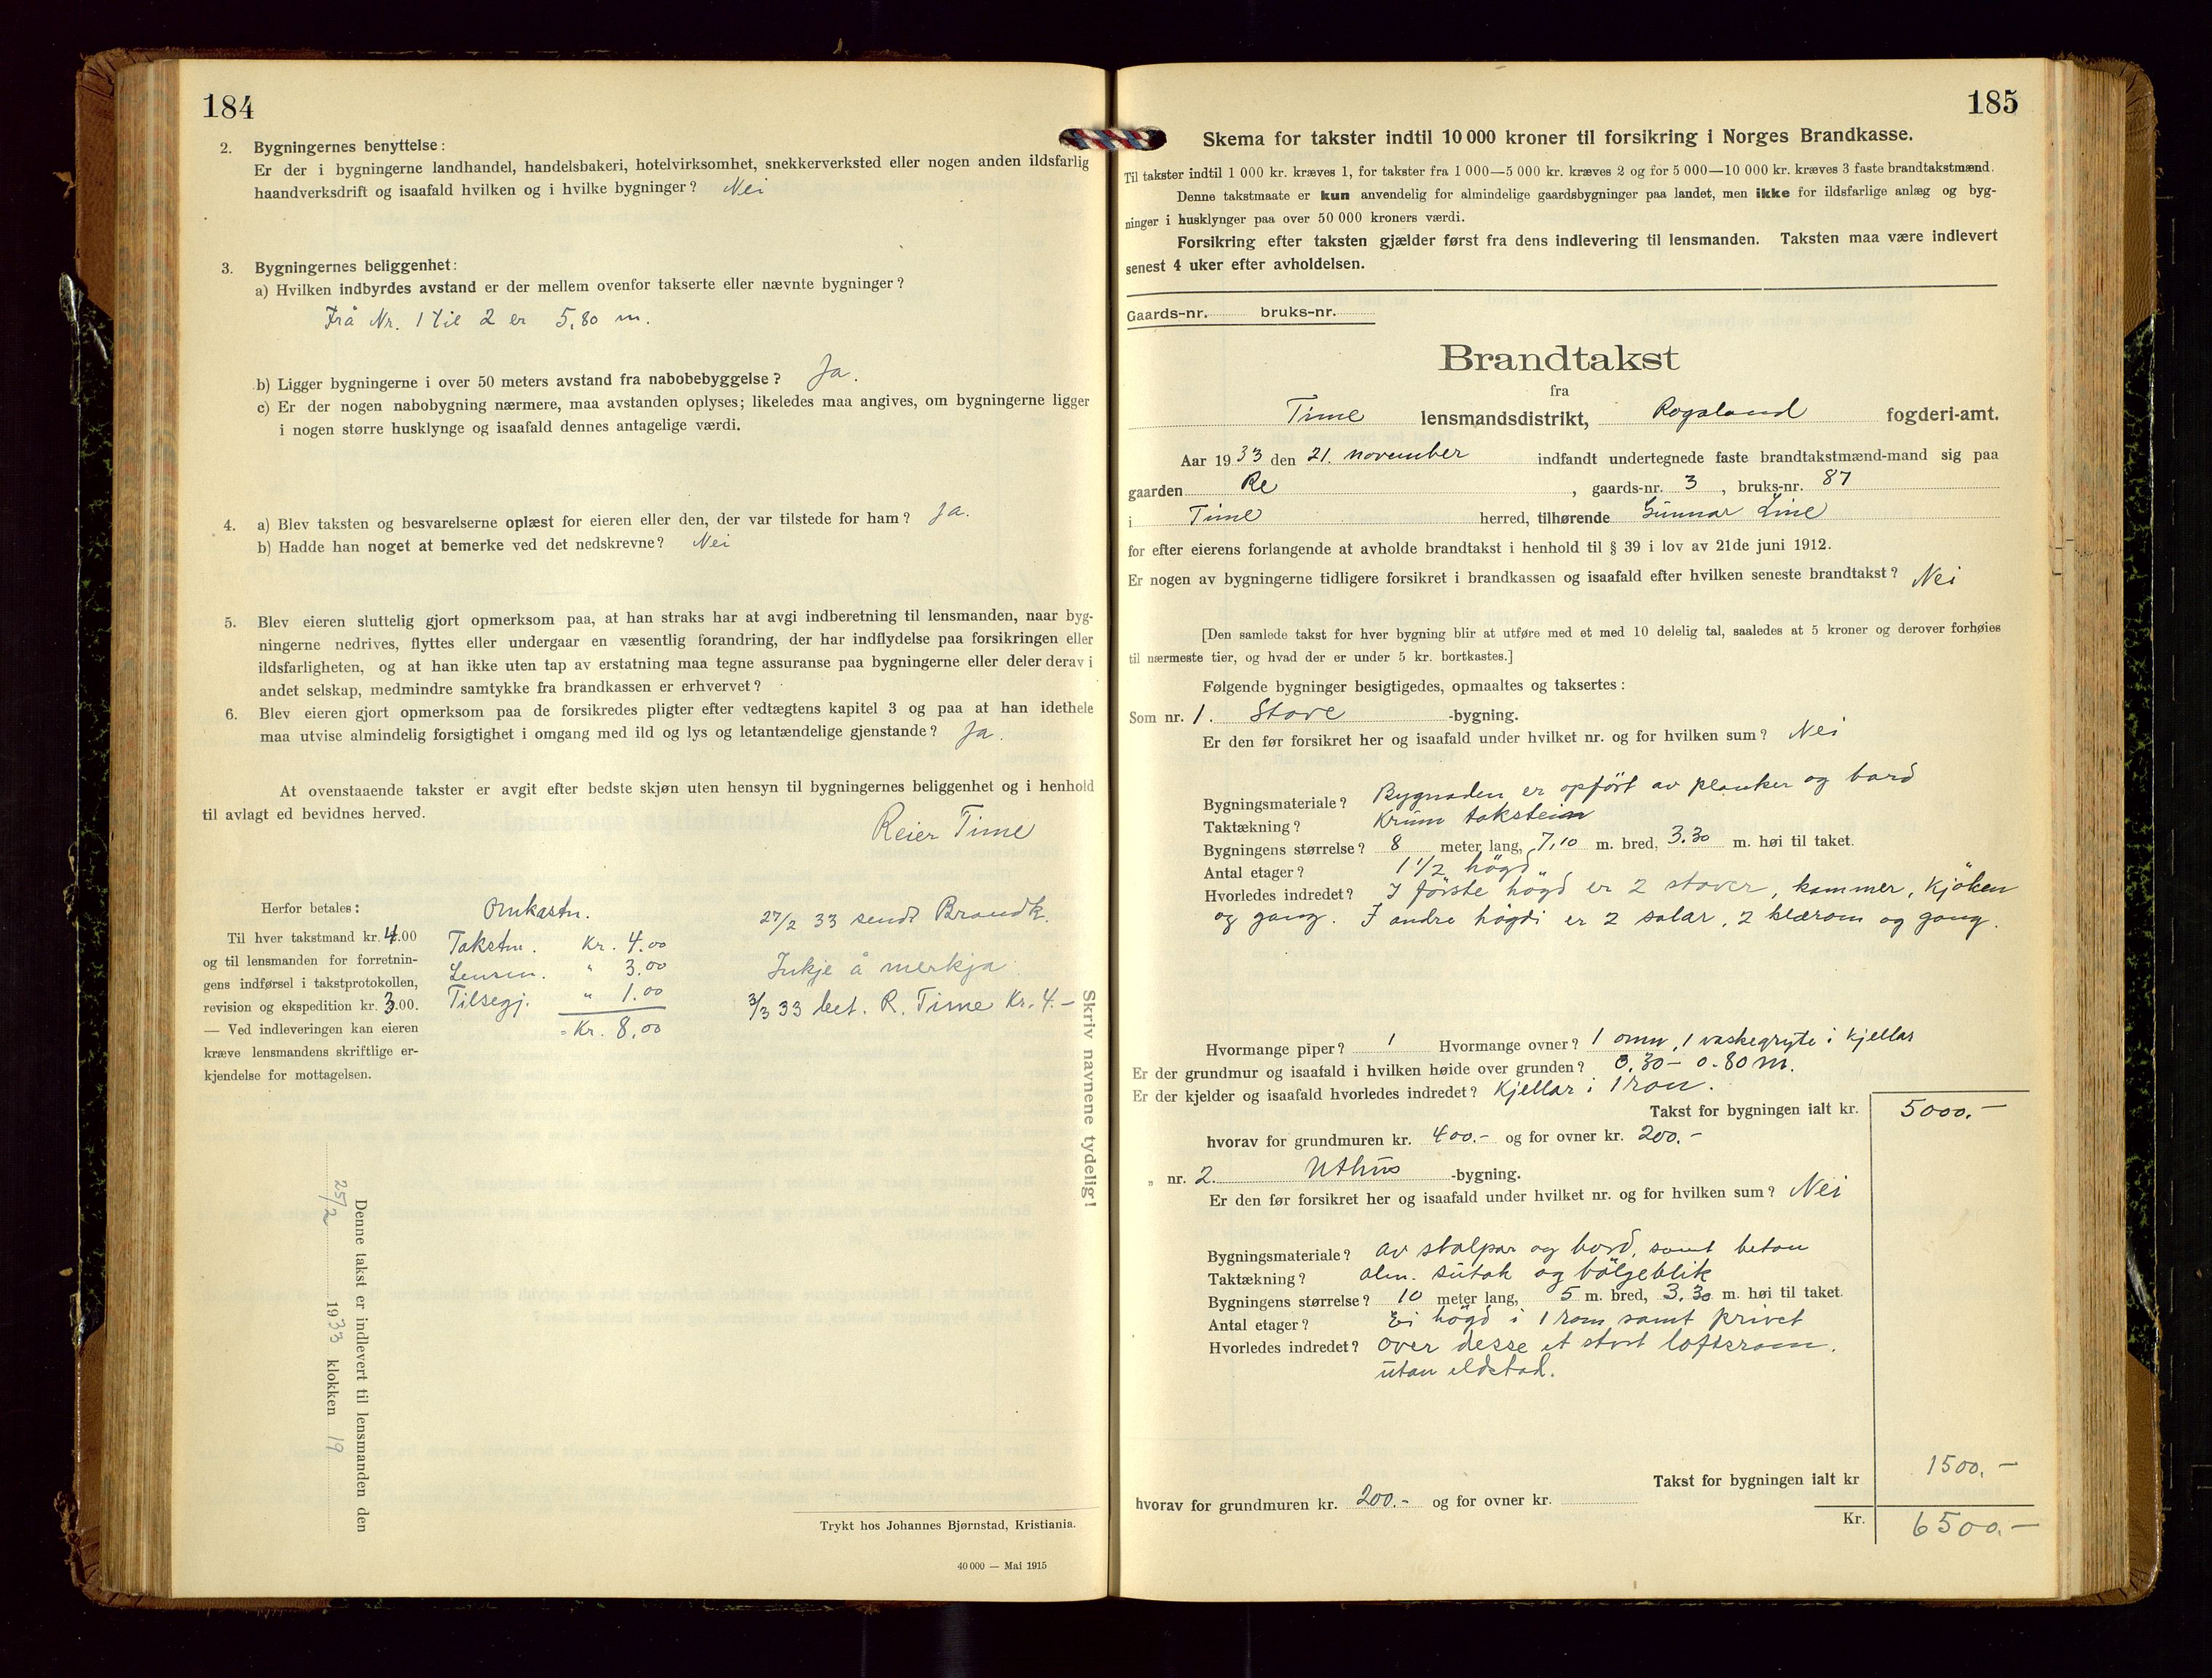 184
2. Bygningernes benyttelse:
Er der i bygningerne landhandel, handelsbakeri, hotelvirksomhet, snekkerverksted eller nogen anden ildsfarlig
haandverksdrift og isaafald hvilken og i hvilke bygninger? Nei
3. Bygningernes beliggenhet:
a) Hvilken indbyrdes avstand er der mellem ovenfor takserte eller nævnte bygninger?
Frå Nr. 1 til 2 er 5,80 m.
b) Ligger bygningerne i over 50 meters avstand fra nabobebyggelse? Ja.
c) Er der nogen nabobygning nærmere, maa avstanden oplyses; likeledes maa angives, om bygningerne ligger
i nogen større husklynge og isaafald dennes antagelige værdi.
4. a) Blev taksten og besvarelserne oplæst for eieren eller den, der var tilstede for ham? Ja.
b) Hadde han noget at bemerke ved det nedskrevne? Nei
5. Blev eieren sluttelig gjort opmerksom paa, at han straks har at avgi indberetning til lensmanden, naar byg-
ningerne nedrives, flyttes eller undergaar en væsentlig forandring, der har indflydelse paa forsikringen eller
ildsfarligheten, og at han ikke uten tap av erstatning maa tegne assuranse paa bygningerne eller deler derav i
andet selskap, medmindre samtykke fra brandkassen er erhvervet?
6. Blev eieren gjort opmerksom paa de forsikredes pligter efter vedtægtens kapitel 3 og paa at han idethele
maa utvise almindelig forsigtighet i omgang med ild og lys og letantændelige gjenstande? Ja.
At ovenstaaende takster er avgit efter bedste skjøn uten hensyn til bygningernes beliggenhet og i henhold
til avlagt ed bevidnes herved.
Reier Time
Herfor betales:
Til hver takstmand kr. 4.00
og til lensmanden for forretnin-
gens indførsel i takstprotokollen,
revision og ekspedition kr. 3.00.
— Ved indleveringen kan eieren
kræve lensmandens skriftlige er-
kjendelse for mottagelsen.
Omkastn.
Takstm. Kr. 4.00
Lensm. " 3.00
Tilsegj. " 1.00
= Kr. 8,00
27/2 33 sendt Brandk.
Inkje å merkja
3/3 33 bet. R. Time Kr. 4.-
Skriv navnene tydelig!
Denne takst er indlevert til lensmanden den
25/2 1933 klokken 19
Trykt hos Johannes Bjørnstad, Kristiania.
40 000 — Mai 1915
185
Skema for takster indtil 10 000 kroner til forsikring i Norges Brandkasse.
Til takster indtil 1 000 kr. kræves 1, for takster fra 1 000—5 000 kr. kræves 2 og for 5 000—10 000 kr. kræves 3 faste brandtakstmænd.
Denne takstmaate er kun anvendelig for almindelige gaardsbygninger paa landet, men ikke for ildsfarlige anlæg og byg-
ninger i husklynger paa over 50 000 kroners værdi.
Forsikring efter taksten gjælder først fra dens indlevering til lensmanden. Taksten maa være indlevert
senest 4 uker efter avholdelsen.
Gaards-nr. bruks-nr.
Brandtakst
fra
Time lensmandsdistrikt, Rogaland fogderi-amt.
Aar 1933 den 21. november indfandt undertegnede faste brandtakstmænd-mand sig paa
gaarden Re, gaards-nr. 3, bruks-nr. 87
i Time herred, tilhørende Gunnar Line
for efter eierens forlangende at avholde brandtakst i henhold til § 39 i lov av 21de juni 1912.
Er nogen av bygningerne tidligere forsikret i brandkassen og isaafald efter hvilken seneste brandtakst? Nei
[Den samlede takst for hver bygning blir at utføre med et med 10 delelig tal, saaledes at 5 kroner og derover forhøies
til nærmeste tier, og hvad der er under 5 kr. bortkastes.]
Følgende bygninger besigtigedes, opmaaltes og taksertes:
Som nr. 1. Stove -bygning.
Er den før forsikret her og isaafald under hvilket nr. og for hvilken sum? Nei
Bygningsmateriale? Bygnaden er opført av planker og bord
Taktækning? Krum takstein
Bygningens størrelse? 8 meter lang, 7,10 m. bred, 3.30 m. høi til taket.
Antal etager? 1 1/2 högd
Hvorledes indredet? I förste högd er 2 stover, kammer, kjöken
og gang. I andre högdi er 2 salar, 2 klærom og gang.
Hvormange piper? 1 Hvormange ovner? 1 omn, 1 vaskegryte i kjellar
Er der grundmur og isaafald i hvilken høide over grunden? 0.30 - 0.80 m.
Er der kjelder og isaafald hvorledes indredet? Kjellar i 1 rom.
Takst for bygningen ialt kr. 5000.-
hvorav for grundmuren kr. 400.- og for ovner kr. 200.-
„ nr. 2. Uthus -bygning.
Er den før forsikret her og isaafald under hvilket nr. og for hvilken sum? Nei
Bygningsmateriale? av stolpar og bord, samt beton
Taktækning? alm. sutak og bölgeblik
Bygningens størrelse? 10 meter lang, 5 m. bred, 3.30 m. høi til taket.
Antal etager? Ei högd i 1 rom samt privet
Hvorledes indredet? over desse et stort loftsrom.
utan eldstad.
Takst for bygningen ialt kr 1500.-
hvorav for grundmuren kr. 200.- og for ovner kr.
Kr. 6500.-